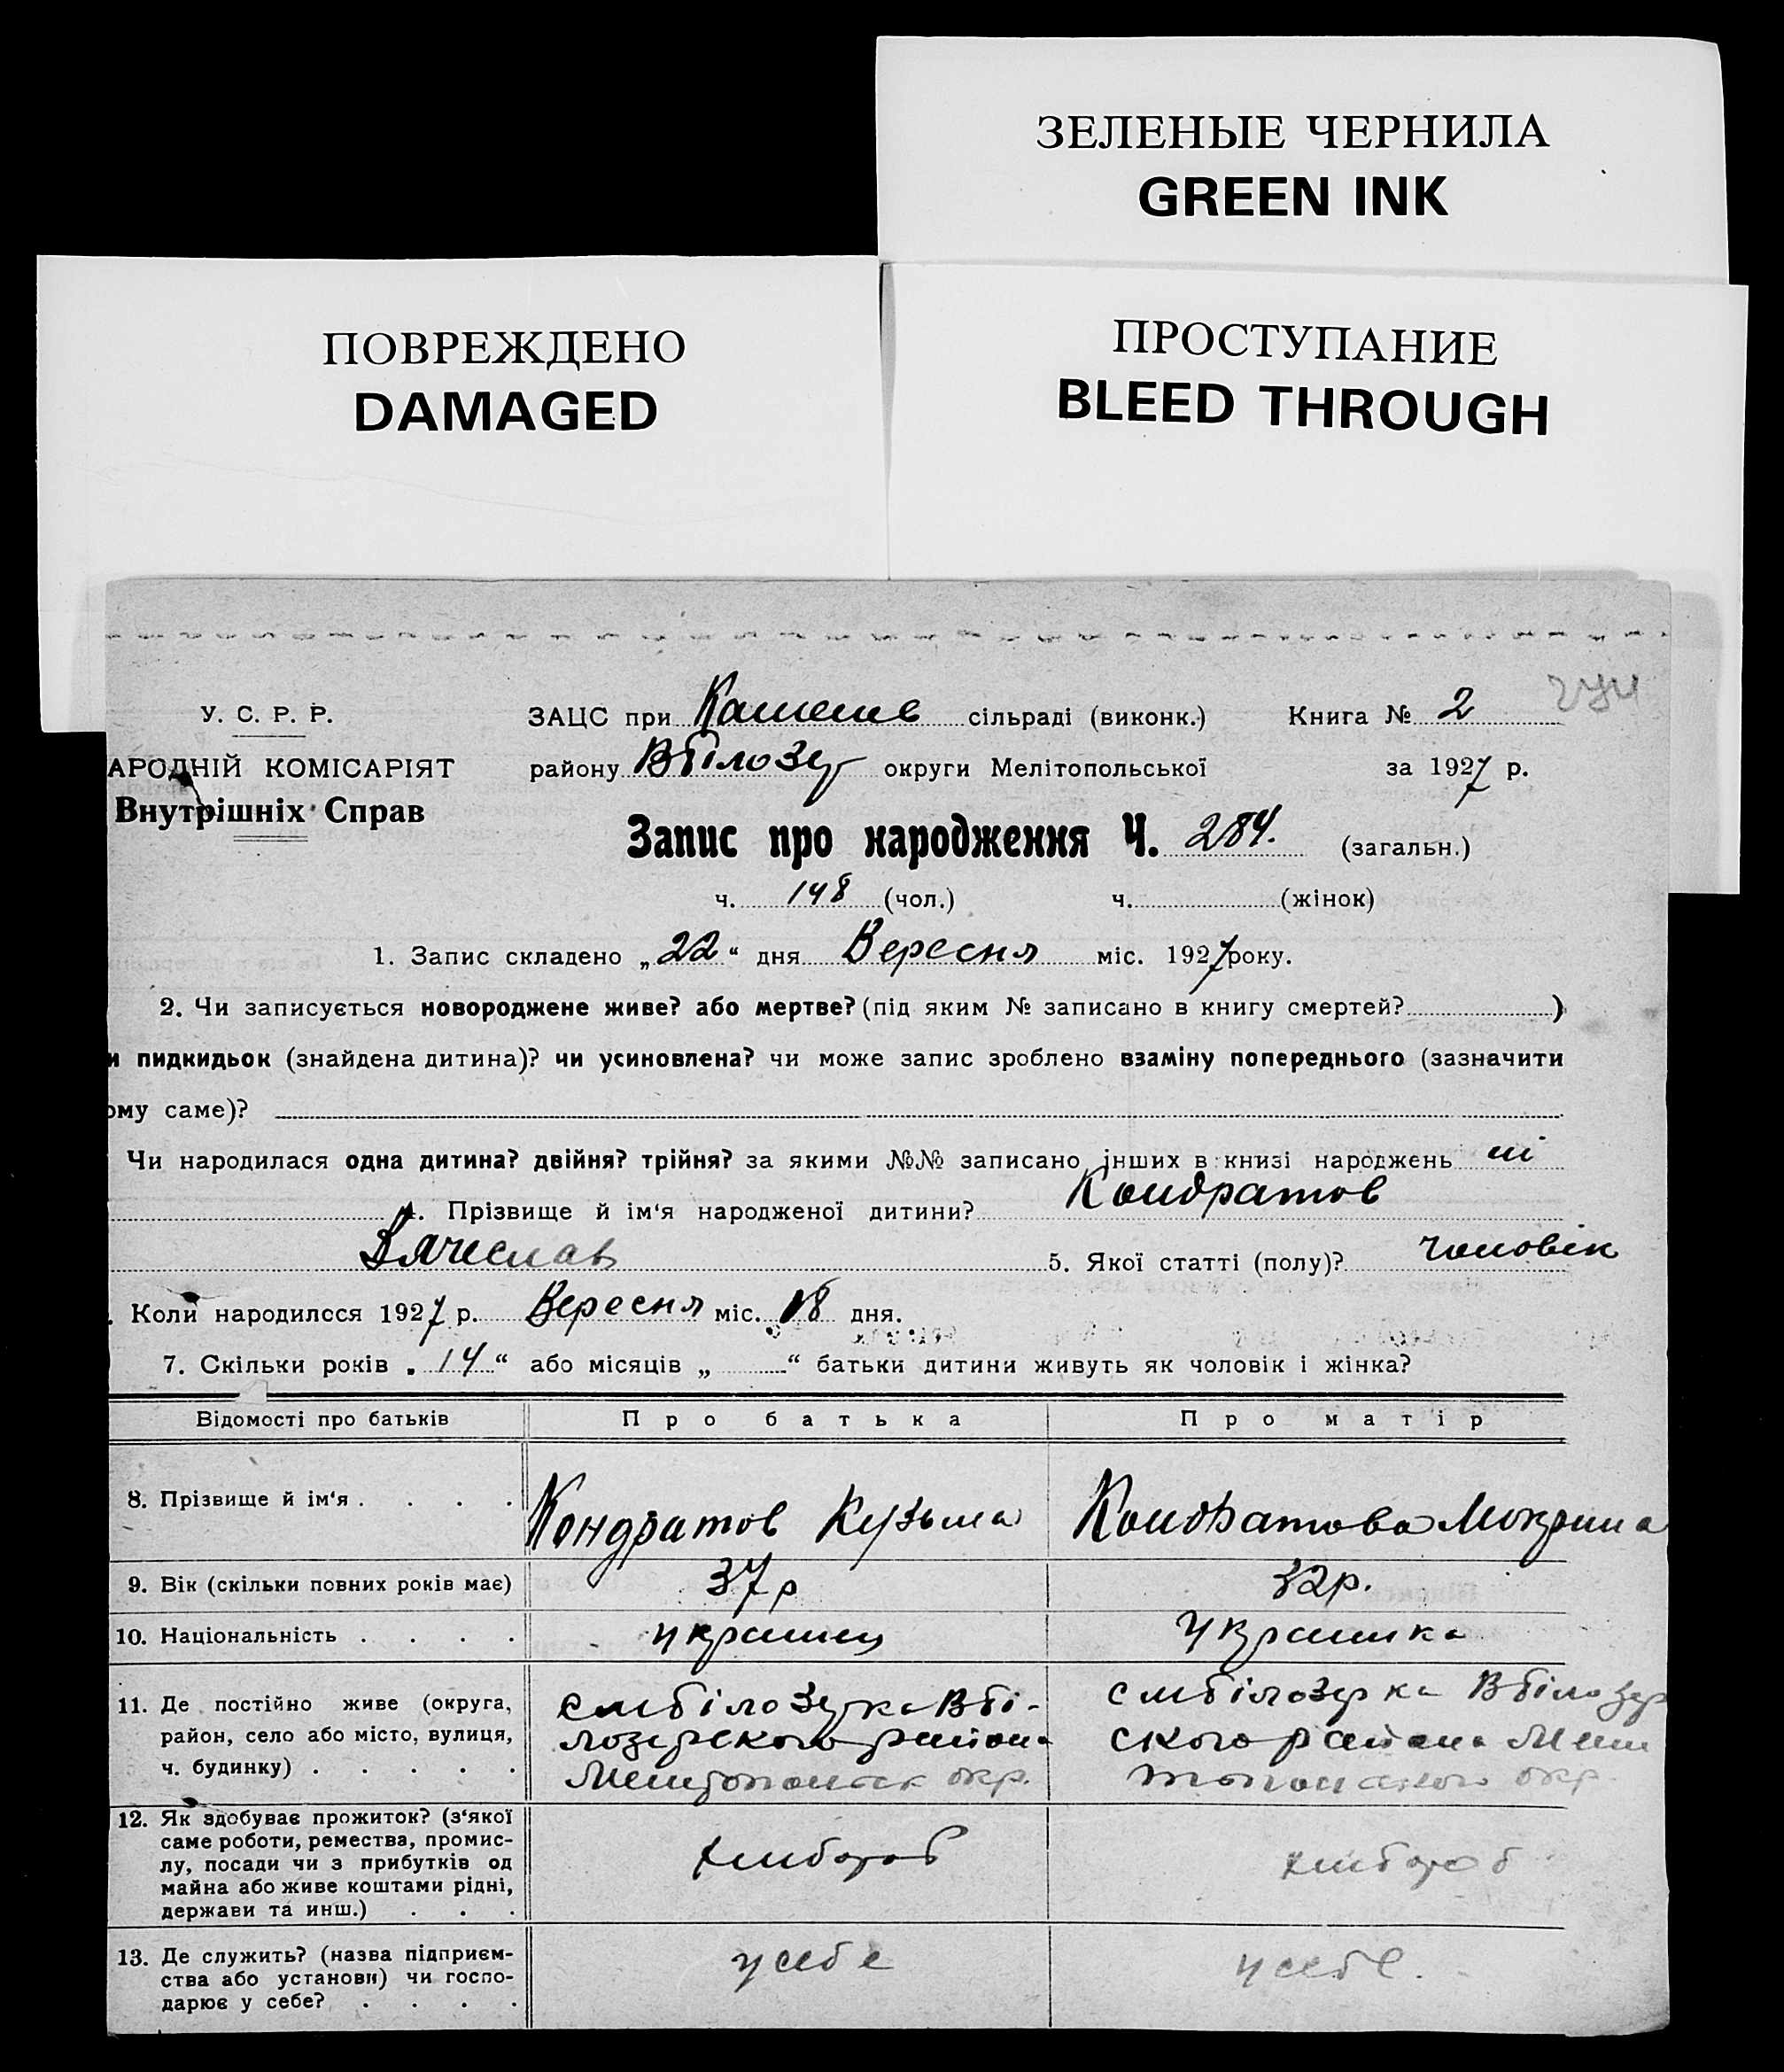 ЗЕЛЕНЫЕ ЧЕРНИЛА
GREEN INK
ПОВРЕЖДЕНО
DAMAGED
ПРОСТУПАНИЕ
BLEED THROUGH
У. С. Р. Р.
ЗАЦС при сільраді (виконк.) Книга № 2
АРОДНІЙ КОМІСАРІЯТ
району Вбілозер округи Мелітопольської за 1927 р.
Внутрішніх Справ
Запис про народження Ч. 284. (загальн.)
ч. 148 (чол.) ч. (жінок)
1. Запис складено „22“ дня Вересня міс. 1927 року.
2. Чи записується новороджене живе? або мертве? (під яким № записано в книгу смертей? )
и пидкидьок (знайдена дитина)? чи усиновлена? чи може запис зроблено взаміну попереднього (зазначити
ому саме)?
Чи народилася одна дитина? двійня? трійня? за якими №№ записано інших в книзі народжень ні
4. Прізвище й ім'я народженої дитини? Кондратов
Вячеслав 5. Якої статті (полу)? чоловік
. Коли народилося 1927 р. Вересня міс. 18 дня.
7. Скільки років „14“ або місяців „ “ батьки дитини живуть як чоловік і жінка?
Відомості про батьків Про батька Про матір
8. Прізвище й ім'я . . . . Кондратов Кузьма Кондратова Мокрина
9. Вік (скільки повних років має) 37 р 32 р.
10. Національність . . . . украинец украинка
11. Де постійно живе (округа, район, село або місто, вулиця, ч. будинку) . . . . .
смбілозерка Вбі-
лозерского района
Мелитопольск окр.
смбілозерка Вбілозер
ского района Мели
топольского окр.
12. Як здобуває прожиток? (з'якої
саме роботи, ремества, промис-
лу, посади чи з прибутків од
майна або живе коштами рідні,
держави та инш.) . . .
хлибороб хлибороб
13. Де служить? (назва підприєм-
ства або установи) чи госпо-
дарює у себе? . . . .
у себе у себе.